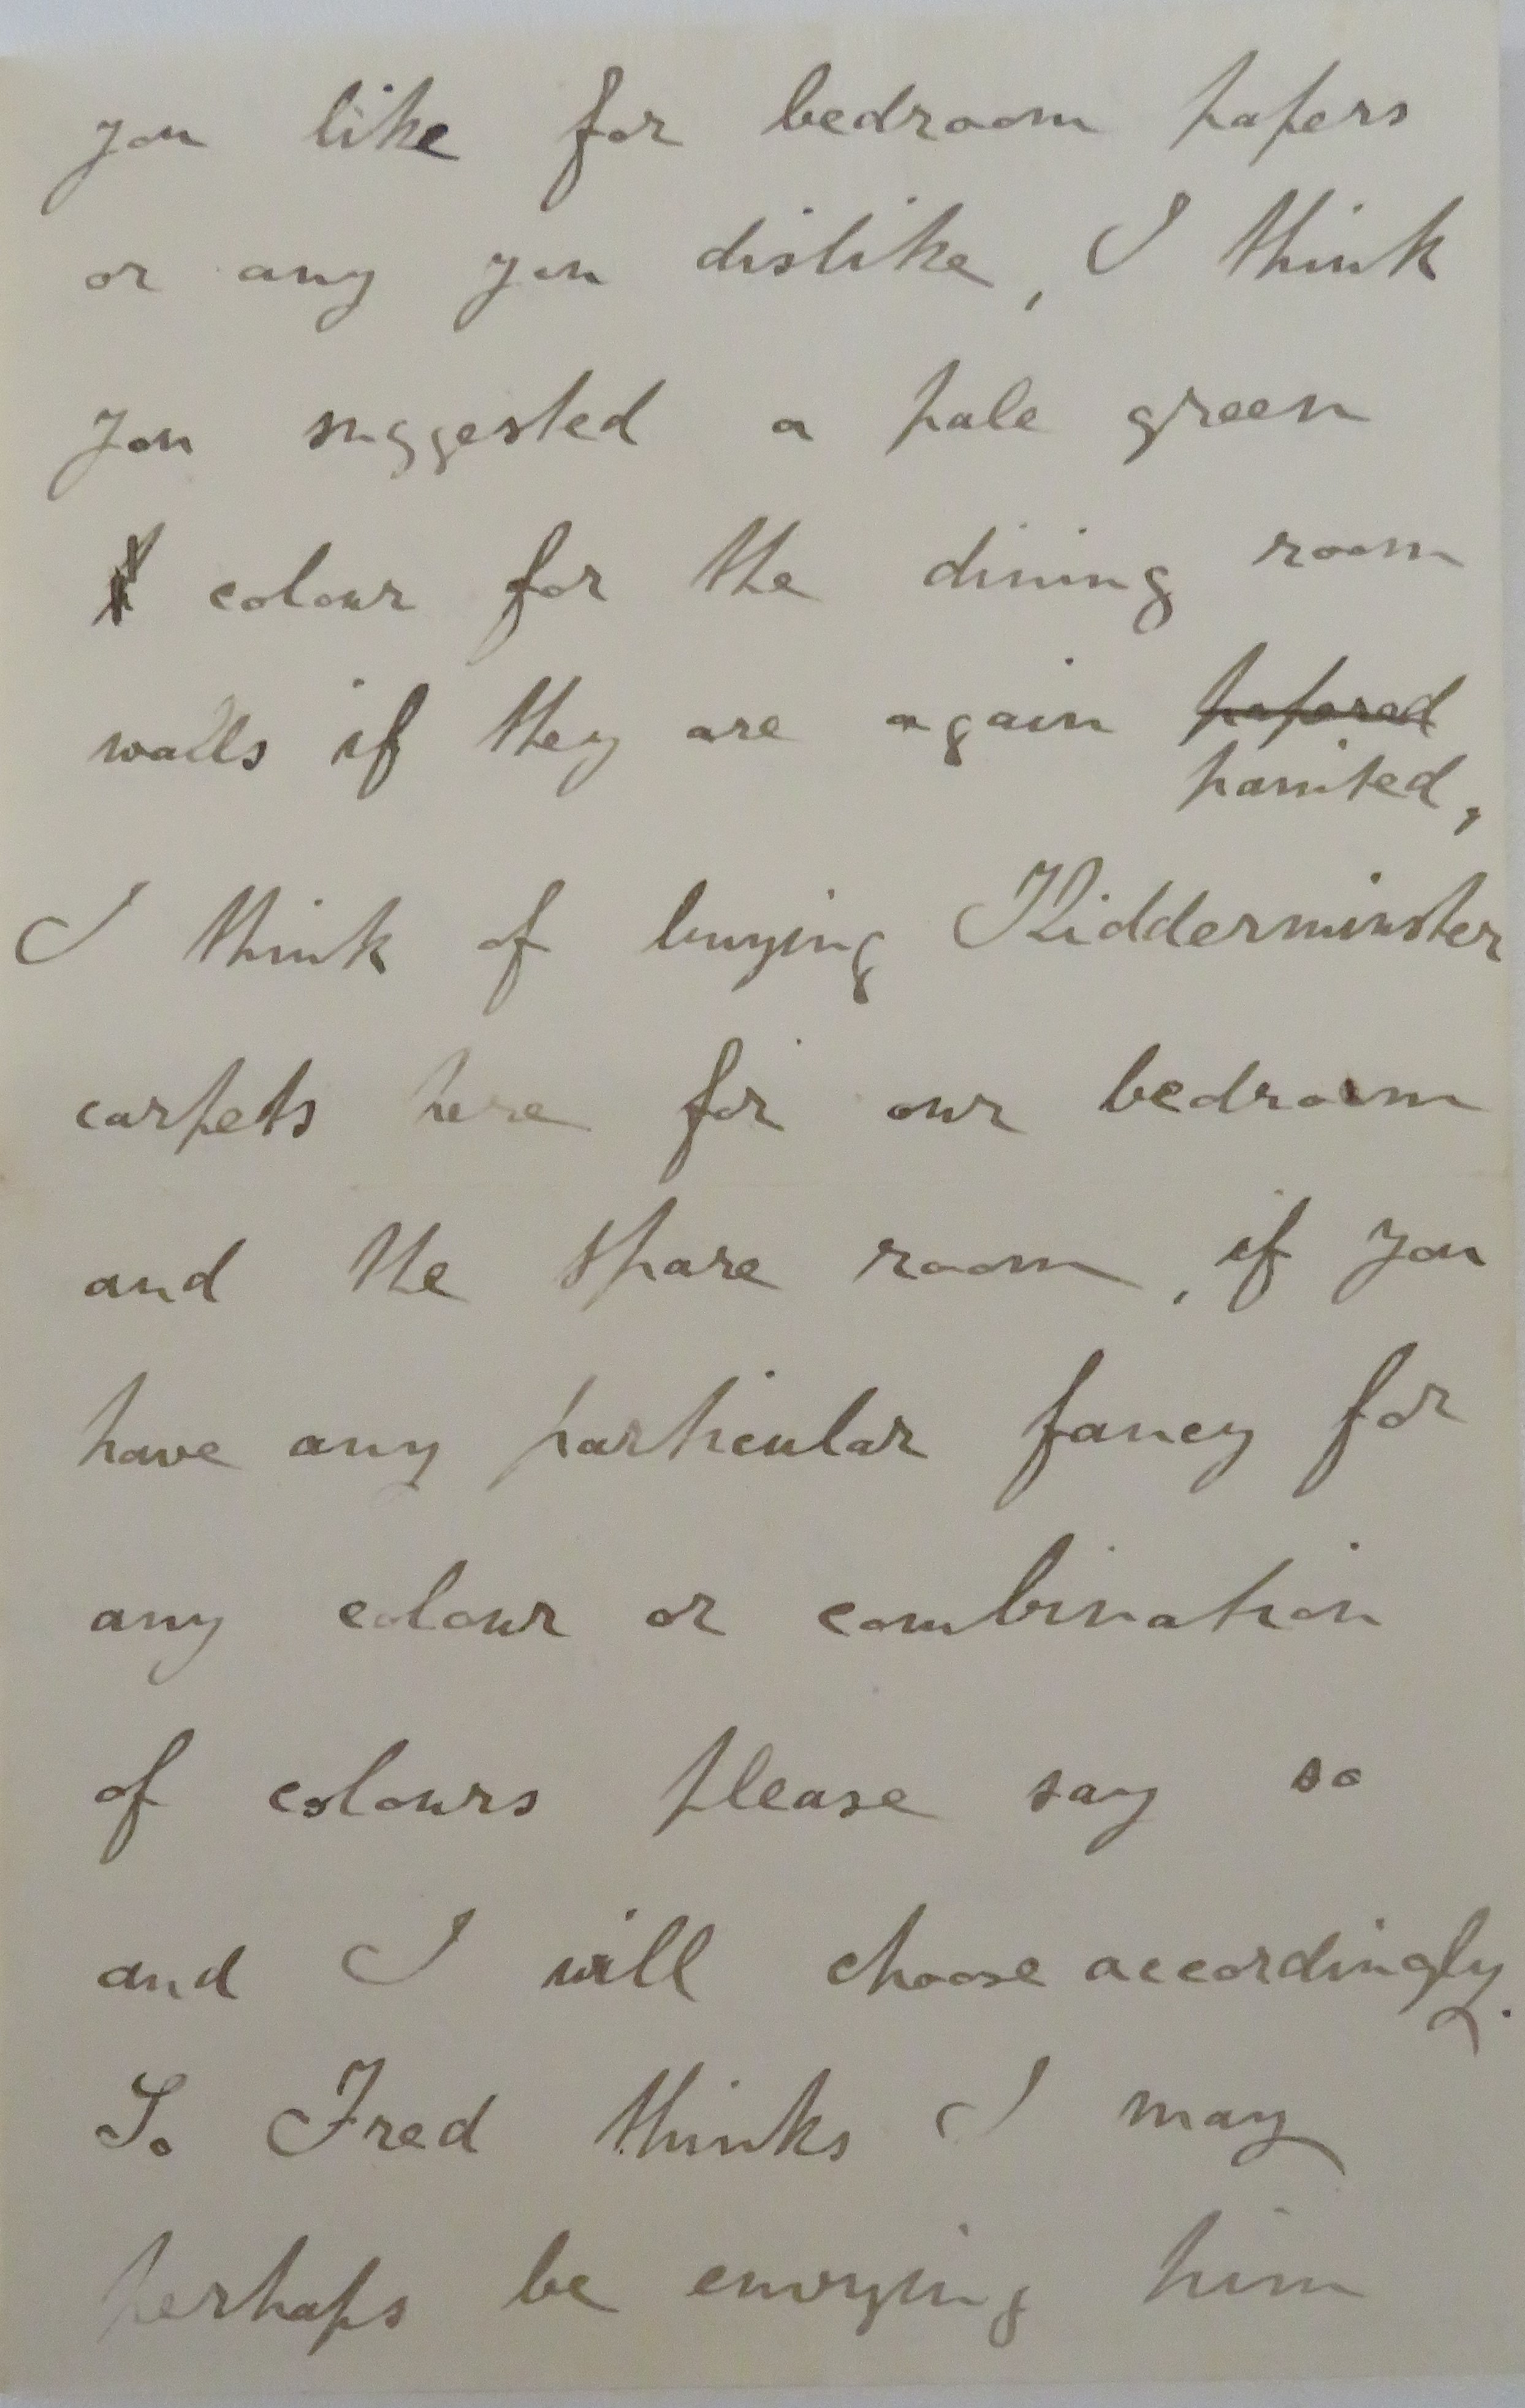 you like for bedroom papers
or any you dislike, I think
you suggested a pale green
colour for the dining room
walls if they are again papered
painted,
I think of buying Kidderminster
carpets here for our bedroom
and the spare room, if you
have any particular fancy for
any colour or combination
of colours please say so
and I will choose accordingly.
So Fred thinks I may
perhaps be envying him